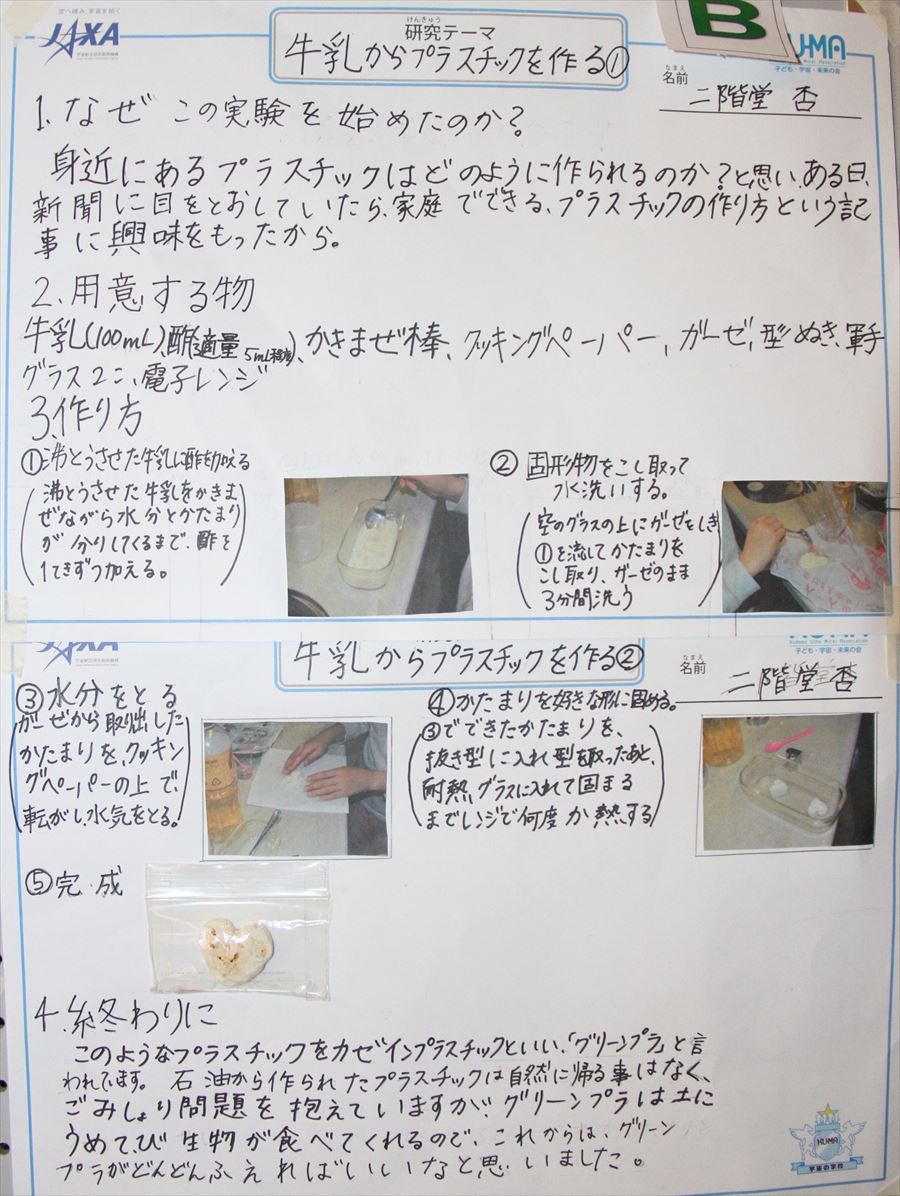 空へ挑み、宇宙を拓く
JAXA
宇宙航空研究開発機構
けんきゅう
研究テーマ
牛乳からプラスチックを作る①
B
KUMA
子ども・宇宙・未来の会
なまえ
名前 二階堂 杏
1.なぜこの実験を始めたのか？
身近にあるプラスチックはどのように作られるのか？と思い、ある日、
新聞に目をとおしていたら、家庭でできる、プラスチックの作り方という記
事に興味をもったから。
2.用意する物
牛乳(100mL)、酢(適量 5mL程度)、かきまぜ棒、クッキングペーパー、ガーゼ、型ぬき、軍手
グラス2こ、電子レンジ
3.作り方
①沸とうさせた牛乳に酢を加える
(沸とうさせた牛乳をかきま
ぜながら水分とかたまり
が分りしてくるまで、酢を
1てきずつ加える。)
②固形物をこし取って
水洗いする。
(空のグラスの上にガーゼをしき
①を流してかたまりを
こし取り、ガーゼのまま
3分間洗う)
JAXA
宇宙航空研究開発機構
牛乳からプラスチックを作る②
KUMA
Kodomo Uchu Mirai Association
子ども・宇宙・未来の会
なまえ
名前 二階堂 杏
③水分をとる
(ガーゼから取り出した
かたまりを、クッキン
グペーパーの上で、
転がし水気をとる。)
④かたまりを好きな形に固める。
(③でできたかたまりを、
抜き型に入れ型を取ったあと、
耐熱グラスに入れて固まる
までレンジで何度か熱する)
⑤完成
4.終わりに
このようなプラスチックをカゼインプラスチックといい、「グリーンプラ」と言
われてます。石油から作られたプラスチックは自然に帰る事はなく、
ごみしょり問題を抱えていますが、グリーンプラは土に
うめて、び生物が食べてくれるので、これからは、グリーン
プラがどんどんふえればいいなと思いました。
KUMA
宇宙の学校